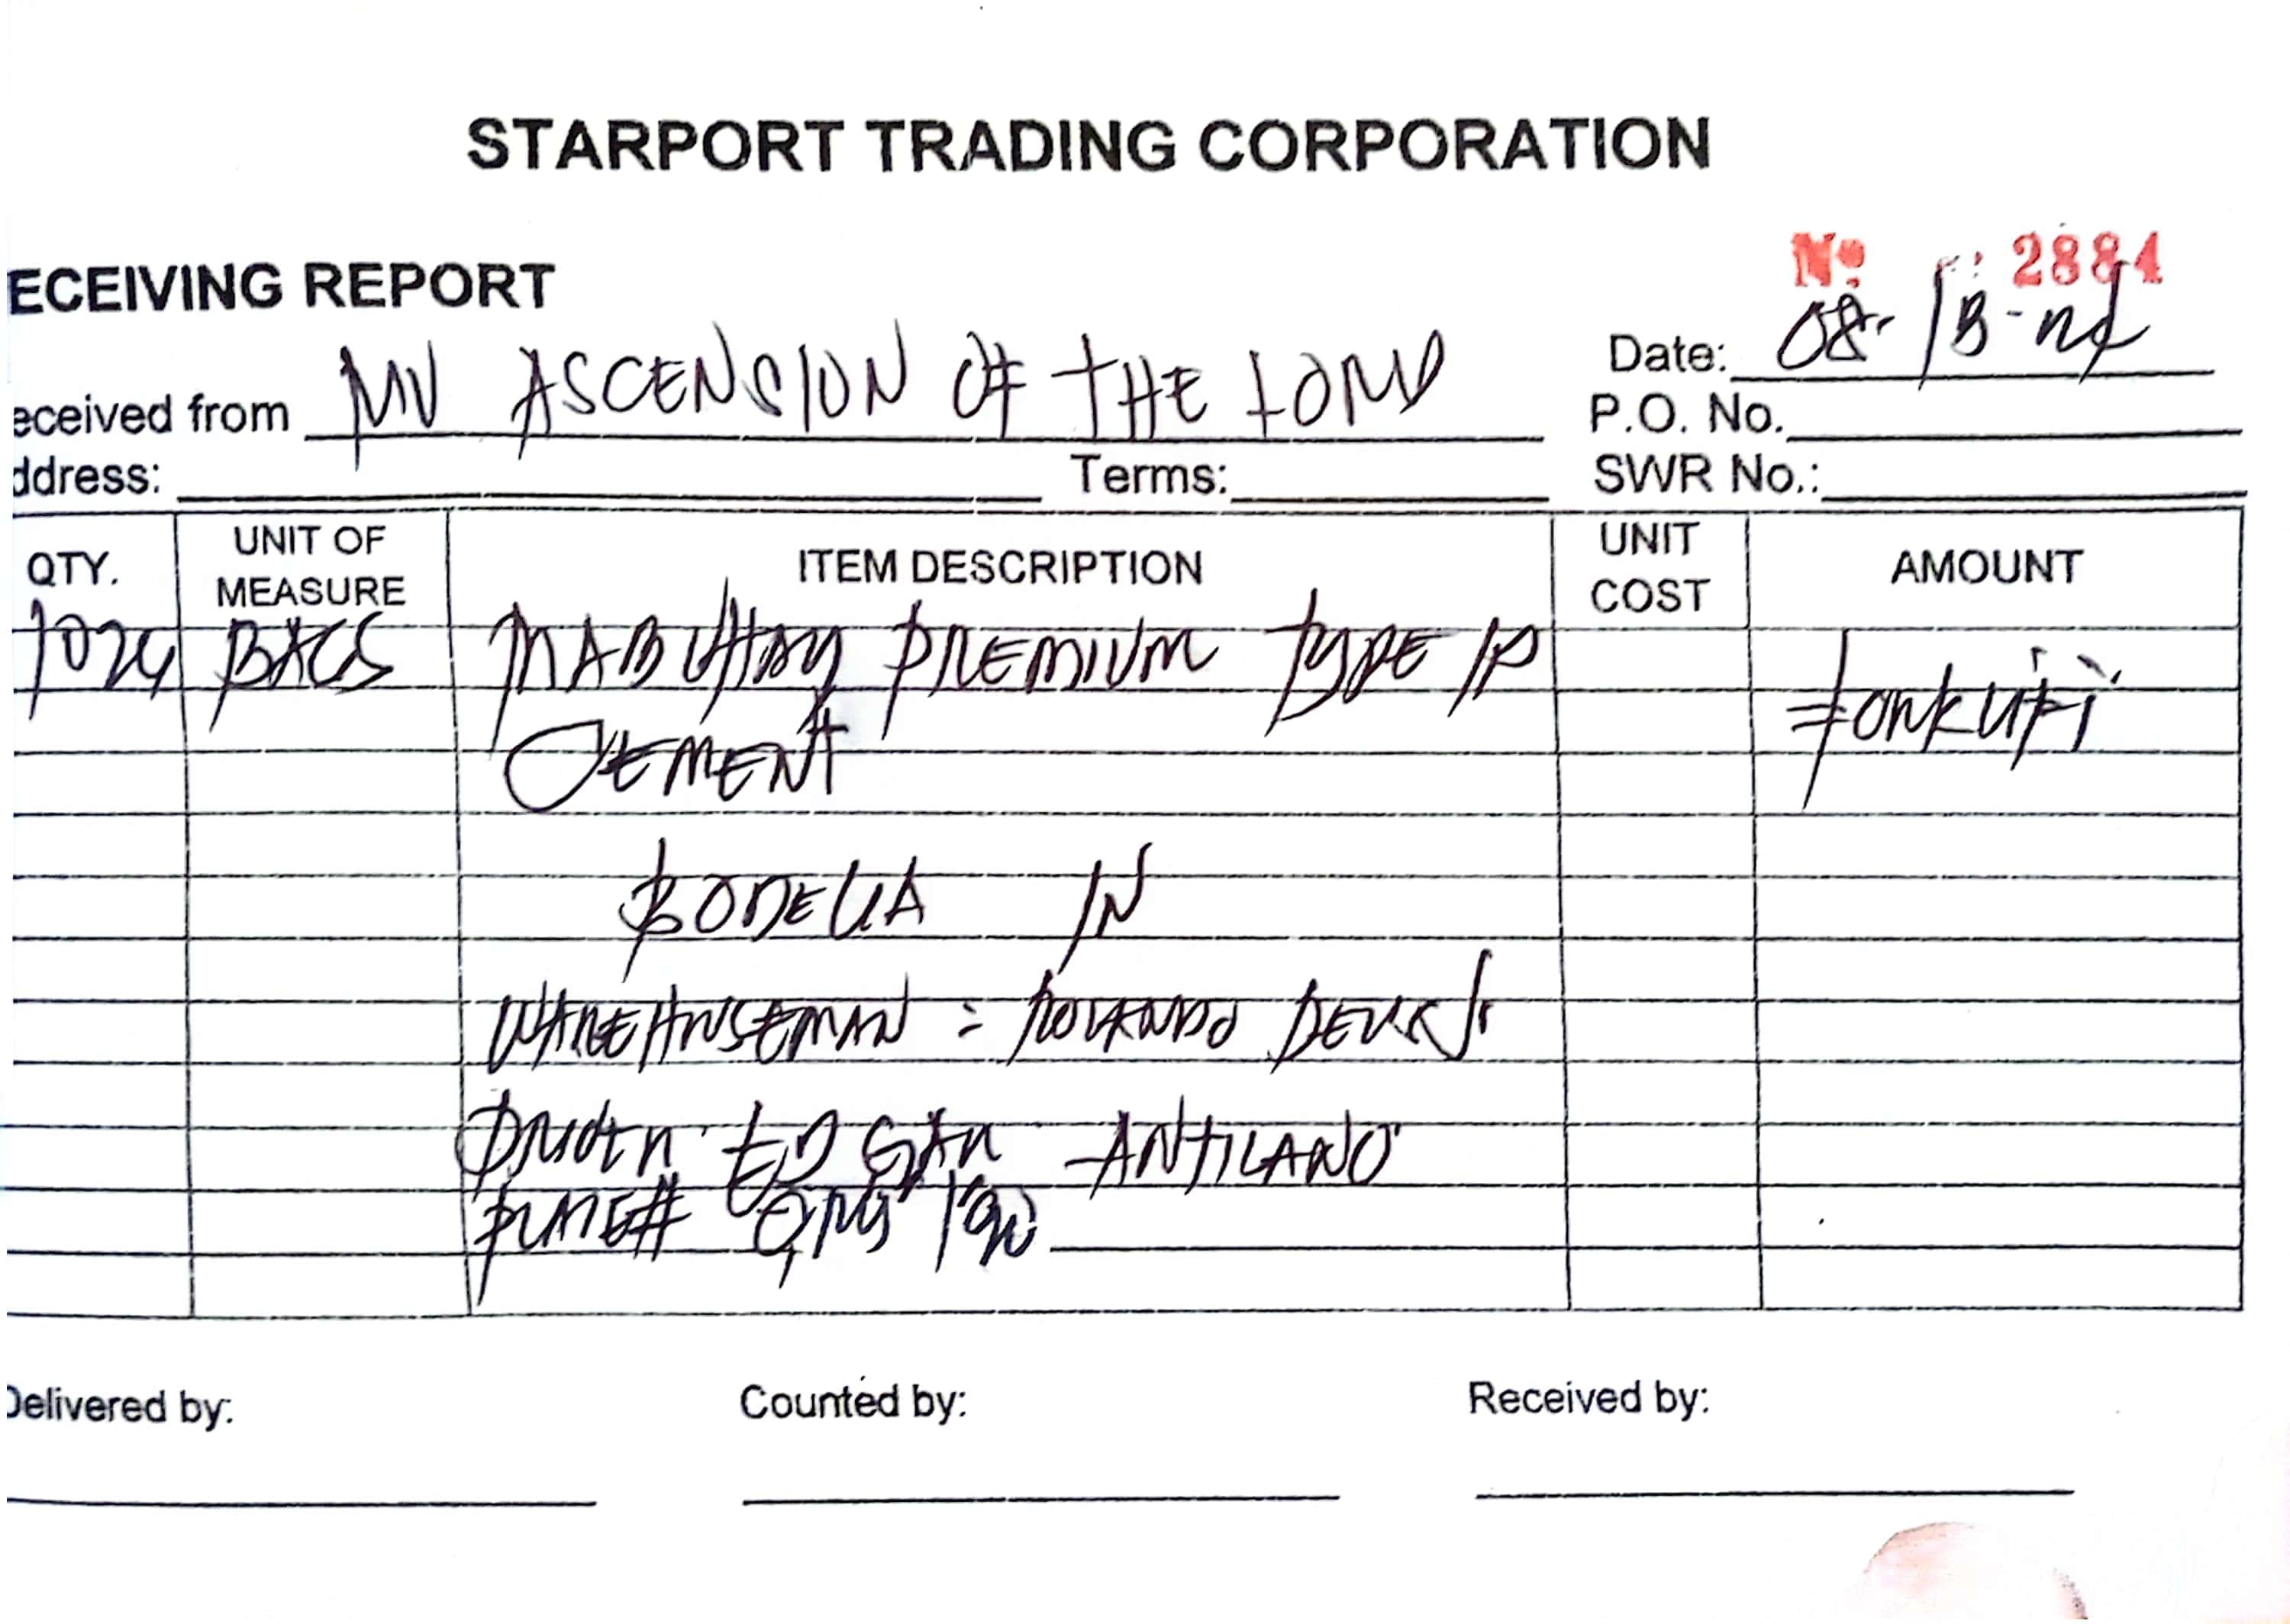 STARPORT TRADING CORPORATION
ECEIVING REPORT
Nº 2884
Date: 08-13-24
eceived from MV ASCENSION OF THE LORD
P.O. No.
ddress: Terms: SWR No.:
QTY. UNIT OF MEASURE ITEM DESCRIPTION UNIT COST AMOUNT
1024 BAGS MABUHAY PREMIUM TYPE 1P
CEMENT
BODEGA IN
WAREHOUSEMAN : ROLANDO
DRIVER EDGAR ANTILANO
PLATE#
Delivered by: Counted by: Received by: